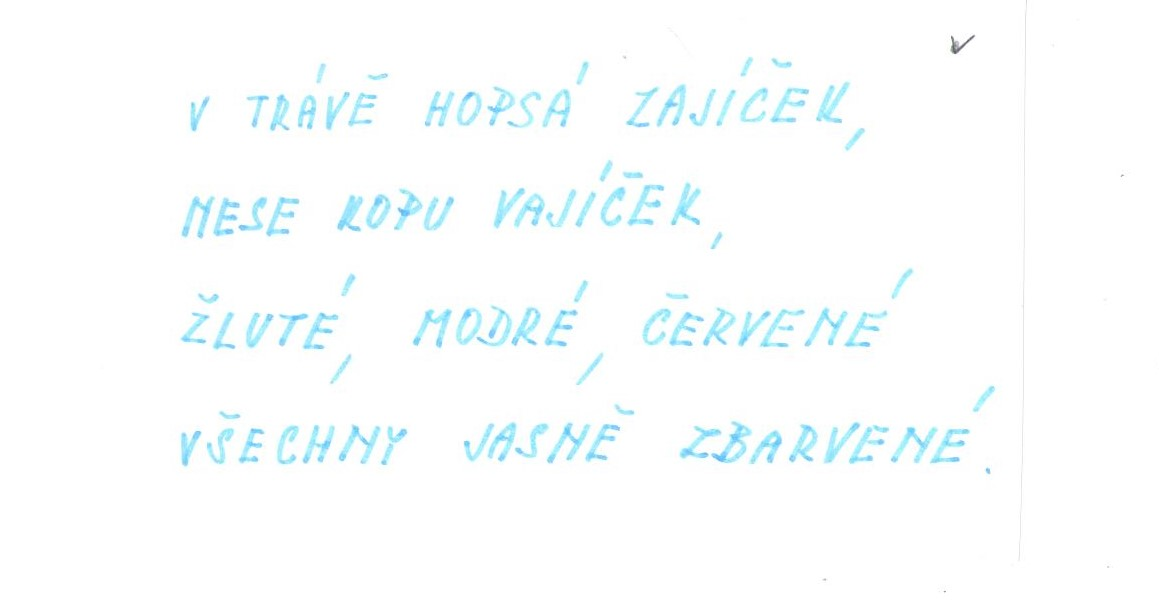 V TRÁVĚ HOPSÁ ZAJÍČEK,
NESE KOPU VAJÍČEK,
ŽLUTÉ, MODRÉ, ČERVENÉ
VŠECHNY JASNĚ ZBARVENÉ.